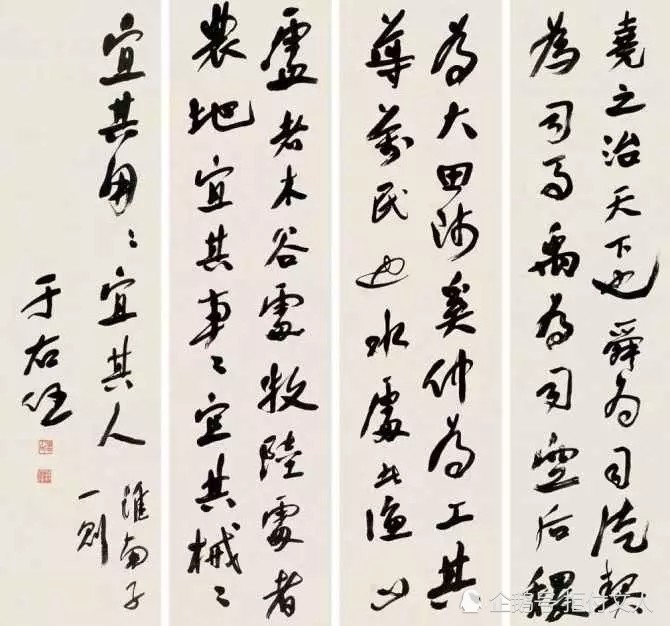 堯之治天下也舜為司徒契
為司馬禹為司空后稷
為大田師奚仲為工其
導萬民也水處者漁山
處者木谷處牧陸處者
農地宜其事〻宜其械〻
宜其用〻宜其人
淮南子
一則
于右任
企鹅号